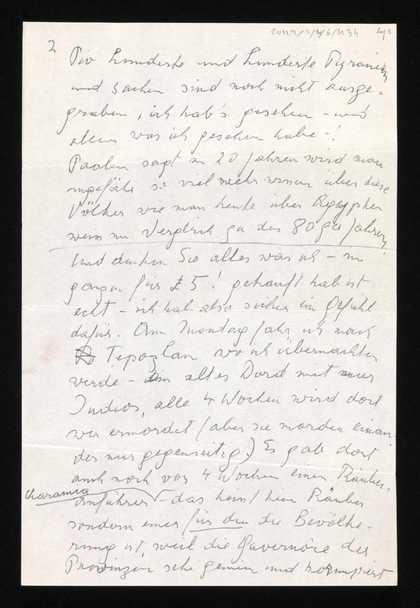 2
Die hunderte und hunderte Pyramiden
und Sachen sind noch nicht ausge-
graben, ich hab's gesehen - und
allem was ich gesehen habe -!
Paalen sagt in 20 Jahren wird man
ungefähr so viel mehr wissen über diese
Völker wie man heute über Aegypten
weiss im Vergleich zu den 80ger Jahren!
Und denken Sie alles was ich - im
ganzen für £ 5! gekauft hab ist
echt - ich hab also sicher ein Gefühl
dafür. Am Montag fahr ich nach
Tepoztlan wo ich übernachten
werde - ein altes Dorf mit nur
Indios, alle 4 Wochen wird dort
wer ermordet (aber sie morden einan-
der nur gegenseitig.) Es gab dort
auch noch vor 4 Wochen einen Räuber-
anführer - das heisst kein Räuber
sondern einer für den die Bevölke-
rung ist, weil die Gouvernöre der
Provinzen sehr gemein und korrumpiert